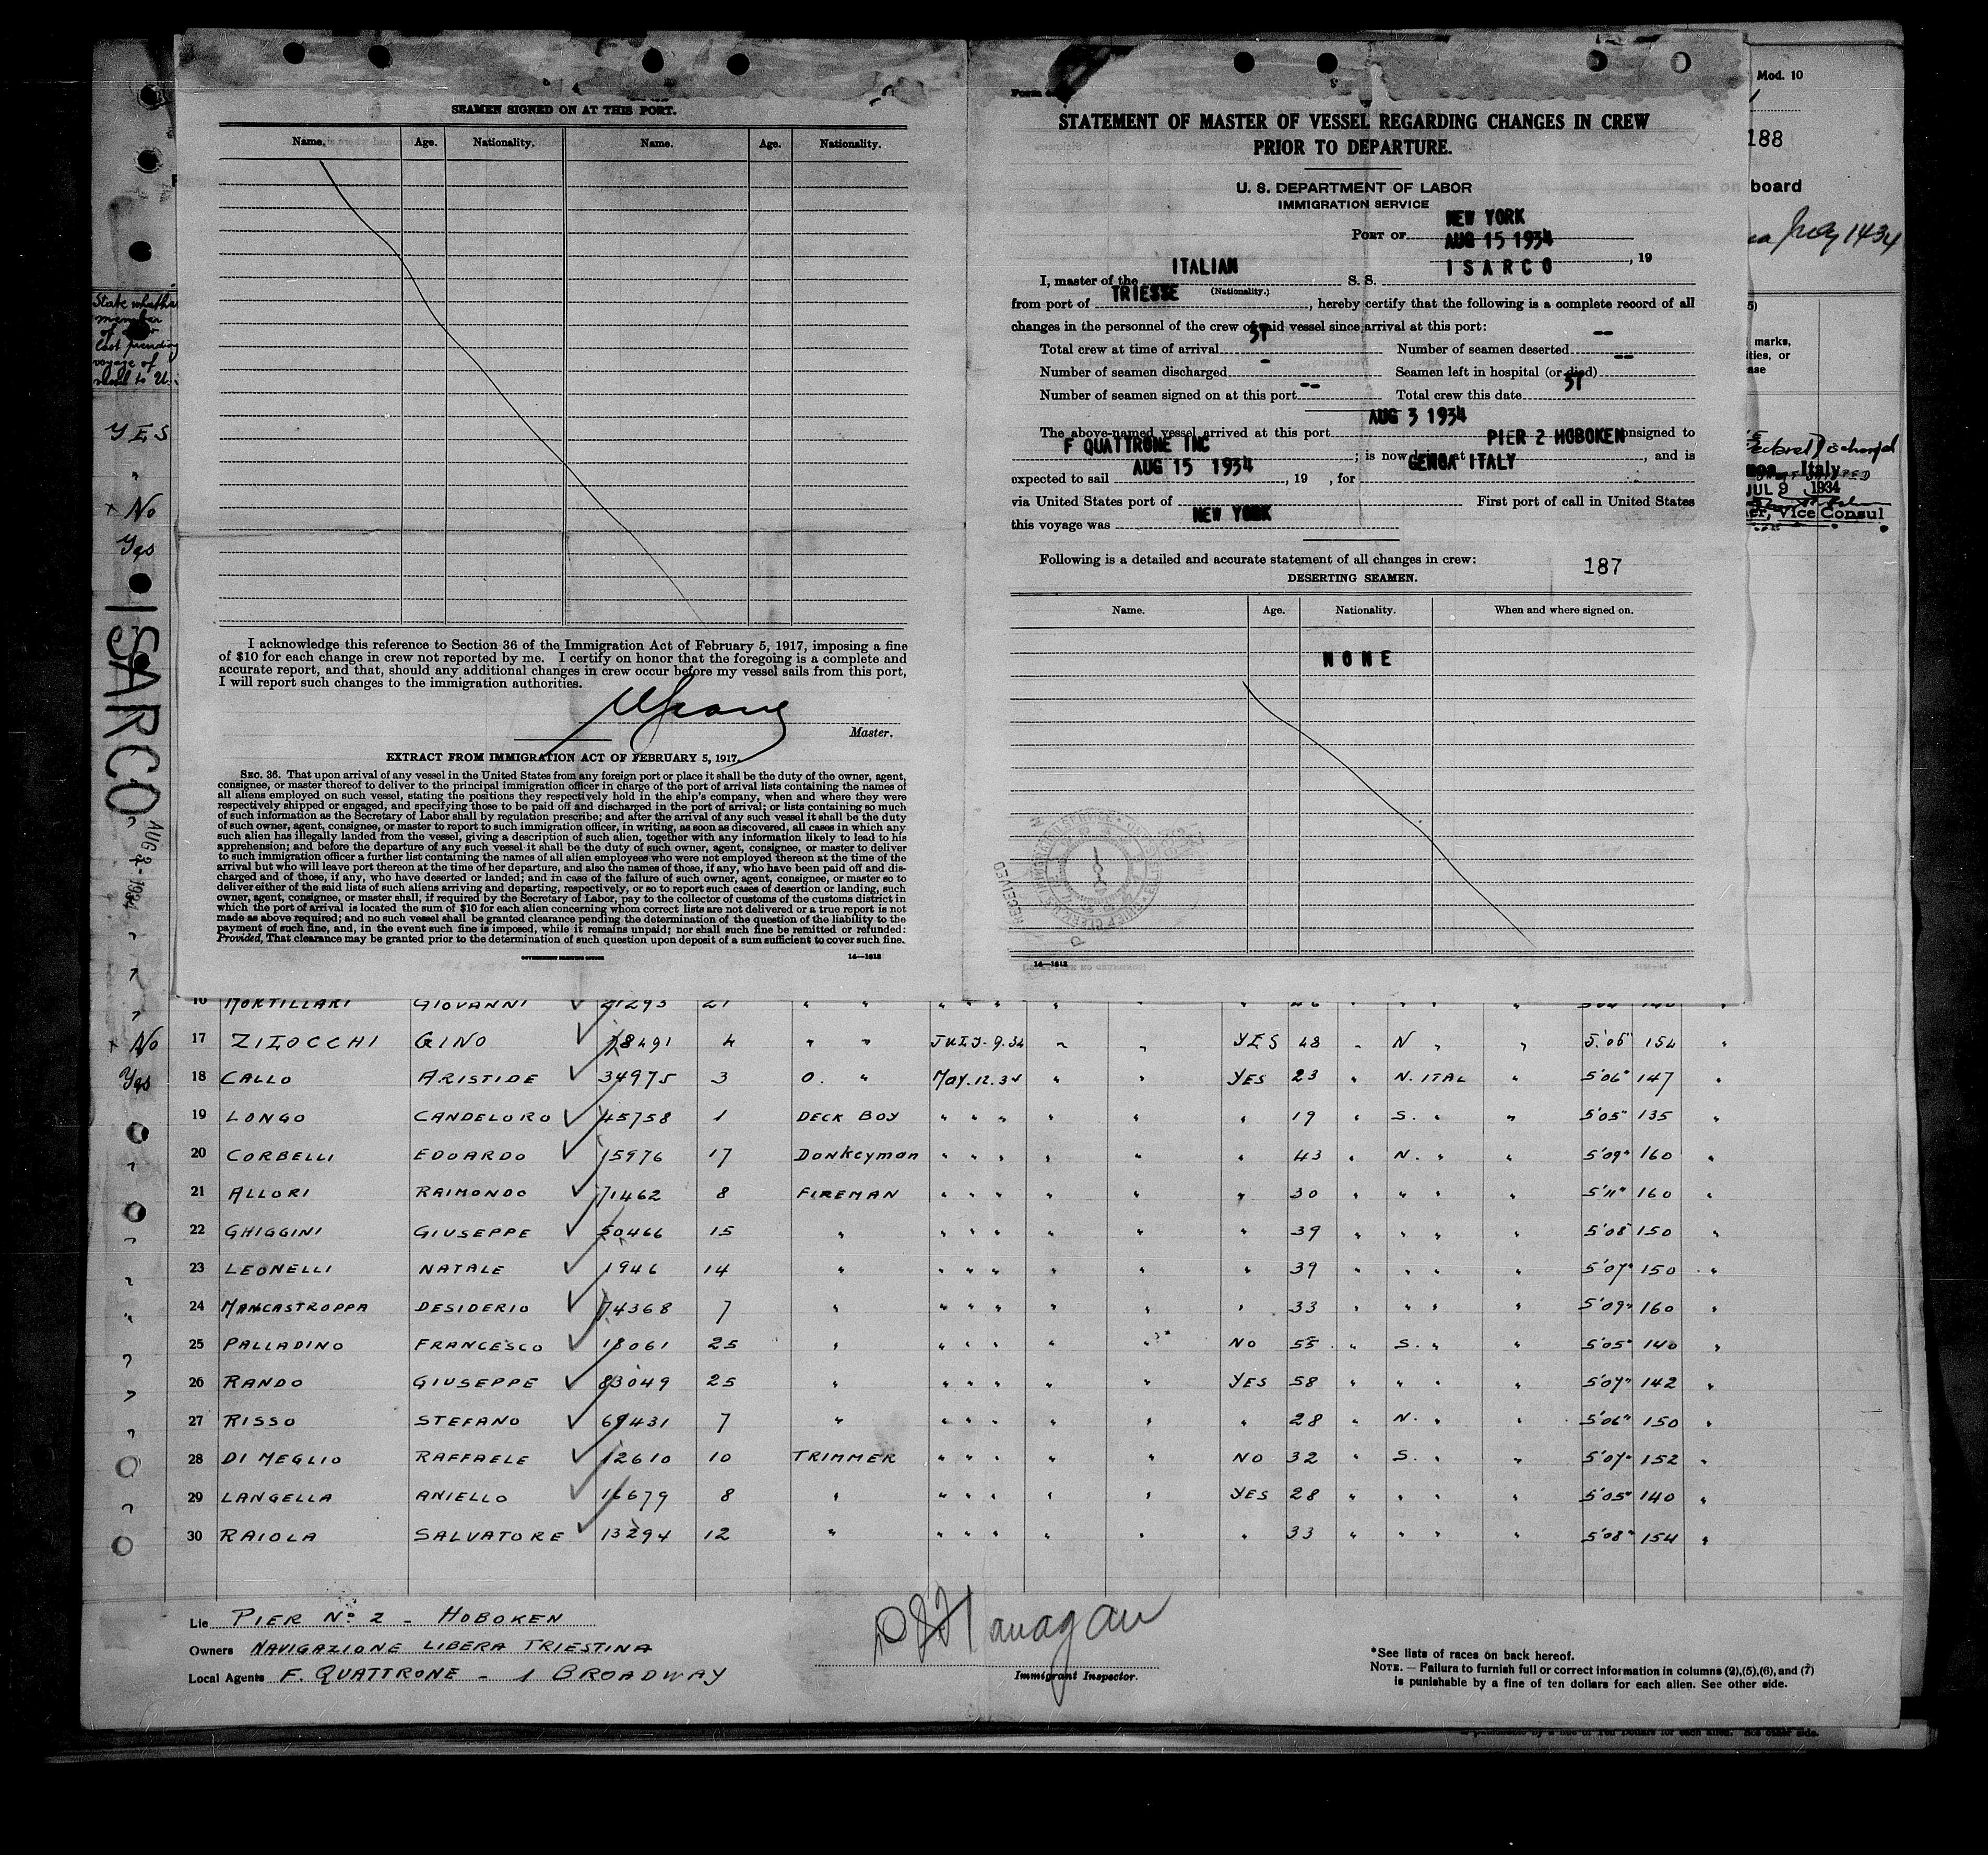 SEAMEN SIGNED ON AT THIS PORT.
Name. Age. Nationality. Name. Age. Nationality.
I acknowledge this reference to Section 36 of the Immigration Act of February 5, 1917, imposing a fine
of $10 for each change in crew not reported by me. I certify on honor that the foregoing is a complete and
accurate report, and that, should any additional changes in crew occur before my vessel sails from this port,
I will report such changes to the immigration authorities.
Master.
EXTRACT FROM IMMIGRATION ACT OF FEBRUARY 5, 1917.
SEC. 36. That upon arrival of any vessel in the United States from any foreign port or place it shall be the duty of the owner, agent,
consignee, or master thereof to deliver to the principal immigration officer in charge of the port of arrival lists containing the names of
all aliens employed on such vessel, stating the positions they respectively hold in the ship's company, when and where they were
respectively shipped or engaged, and specifying those to be paid off and discharged in the port of arrival; or lists containing so much
of such information as the Secretary of Labor shall by regulation prescribe; and after the arrival of any such vessel it shall be the duty
of such owner, agent, consignee, or master to report to such immigration officer, in writing, as soon as discovered, all cases in which any
such alien has illegally landed from the vessel, giving a description of such alien, together with any information likely to lead to his
apprehension; and before the departure of any such vessel it shall be the duty of such owner, agent, consignee, or master to deliver
to such immigration officer a further list containing the names of all alien employees who were not employed thereon at the time of the
arrival but who will leave port thereon at the time of her departure, and also the names of those, if any, who have been paid off and dis-
charged and of those, if any, who have deserted or landed; and in case of the failure of such owner, agent, consignee, or master so to
deliver either of the said lists of such aliens arriving and departing, respectively, or so to report such cases of desertion or landing, such
owner, agent, consignee, or master shall, if required by the Secretary of Labor, pay to the collector of customs of the customs district in
which the port of arrival is located the sum of $10 for each alien concerning whom correct lists are not delivered or a true report is not
made as above required; and no such vessel shall be granted clearance pending the determination of the question of the liability to the
payment of such fine, and, in the event such fine is imposed, while it remains unpaid; nor shall such fine be remitted or refunded:
Provided, That clearance may be granted prior to the determination of such question upon deposit of a sum sufficient to cover such fine.
GOVERNMENT PRINTING OFFICE 14—1613
STATEMENT OF MASTER OF VESSEL REGARDING CHANGES IN CREW
PRIOR TO DEPARTURE.
U. S. DEPARTMENT OF LABOR
IMMIGRATION SERVICE
PORT OF NEW YORK
AUG 15 1934, 19
I, master of the ITALIAN S. S. ISARCO
(Nationality.)
from port of TRIESSE, hereby certify that the following is a complete record of all
changes in the personnel of the crew of said vessel since arrival at this port:
Total crew at time of arrival 37 Number of seamen deserted --
Number of seamen discharged - Seamen left in hospital (or died) --
Number of seamen signed on at this port -- Total crew this date 37
The above-named vessel arrived at this port AUG 3 1934 consigned to
F QUATTRONE INC; is now lying at PIER 2 HOBOKEN, and is
expected to sail AUG 15 1934, 19 , for GENOA ITALY
via United States port of First port of call in United States
this voyage was NEW YORK
Following is a detailed and accurate statement of all changes in crew: 187
DESERTING SEAMEN.
Name. Age. Nationality. When and where signed on.
NONE
RECEIVED
14—1613
Mod. 10
188
board
July 1434
marks,
Italy
JUL 9 1934
Vice Consul
State whether
member
of crew
last preceding
voyage of
vessel to U.
YES
"
+ No
Yes
ISARCO
AUG 2 - 1934
16 MORTILLARI GIOVANNI 21293 21 " "
+ No 17 ZIZOCCHI GINO 78491 4 " " JULY-9.34 " " YES 48 " N " " 5'05" 154 "
Yes 18 CALLO ARISTIDE 34975 3 O. " MAY.12.34 " " YES 23 " N. ITAL " 5'06" 147 "
19 LONGO CANDELORO 45758 1 DECK BOY " " " " " " 19 " S. " " 5'05" 135 "
20 CORBELLI EDOARDO 15976 17 DONKEYMAN " " " " " " 43 " N. " " 5'09" 160 "
21 ALLORI RAIMONDO 71462 8 FIREMAN " " " " " " 30 " " " " 5'11" 160 "
22 GHIGGINI GIUSEPPE 50466 15 " " " " " " " 39 " " " " 5'08 150 "
23 LEONELLI NATALE 1946 14 " " " " " " " 39 " " " " 5'07" 150 "
24 MANCASTROPPA DESIDERIO 74368 7 " " " " " " " 33 " " " " 5'09" 160 "
25 PALLADINO FRANCESCO 18061 25 " " " " " " NO 55 " S. " " 5'05" 140 "
26 RANDO GIUSEPPE 83049 25 " " " " " " YES 58 " " " " 5'07" 142 "
27 RISSO STEFANO 69431 7 " " " " " " " 28 " N. " " 5'06" 150 "
28 DI MEGLIO RAFFAELE 12610 10 TRIMMER " " " " " NO 32 " S. " " 5'07" 152 "
29 LANGELLA ANIELLO 16679 8 " " " " " " YES 28 " " " " 5'05" 140 "
30 RAIOLA SALVATORE 13294 12 " " " " " " " 33 " " " " 5'08" 154 "
Lie PIER No 2 - HOBOKEN
Owners NAVIGAZIONE LIBERA TRIESTINA
Local Agents F. QUATTRONE - 1 BROADWAY
DJ Flanagan
Immigrant Inspector.
*See lists of races on back hereof.
NOTE. — Failura to furnish full or correct information in columns (2),(5),(6), and (7)
is punishable by a fine of ten dollars for each alien. See other side.
is punishable by a fine of Ten Dollars for each alien. See other side.